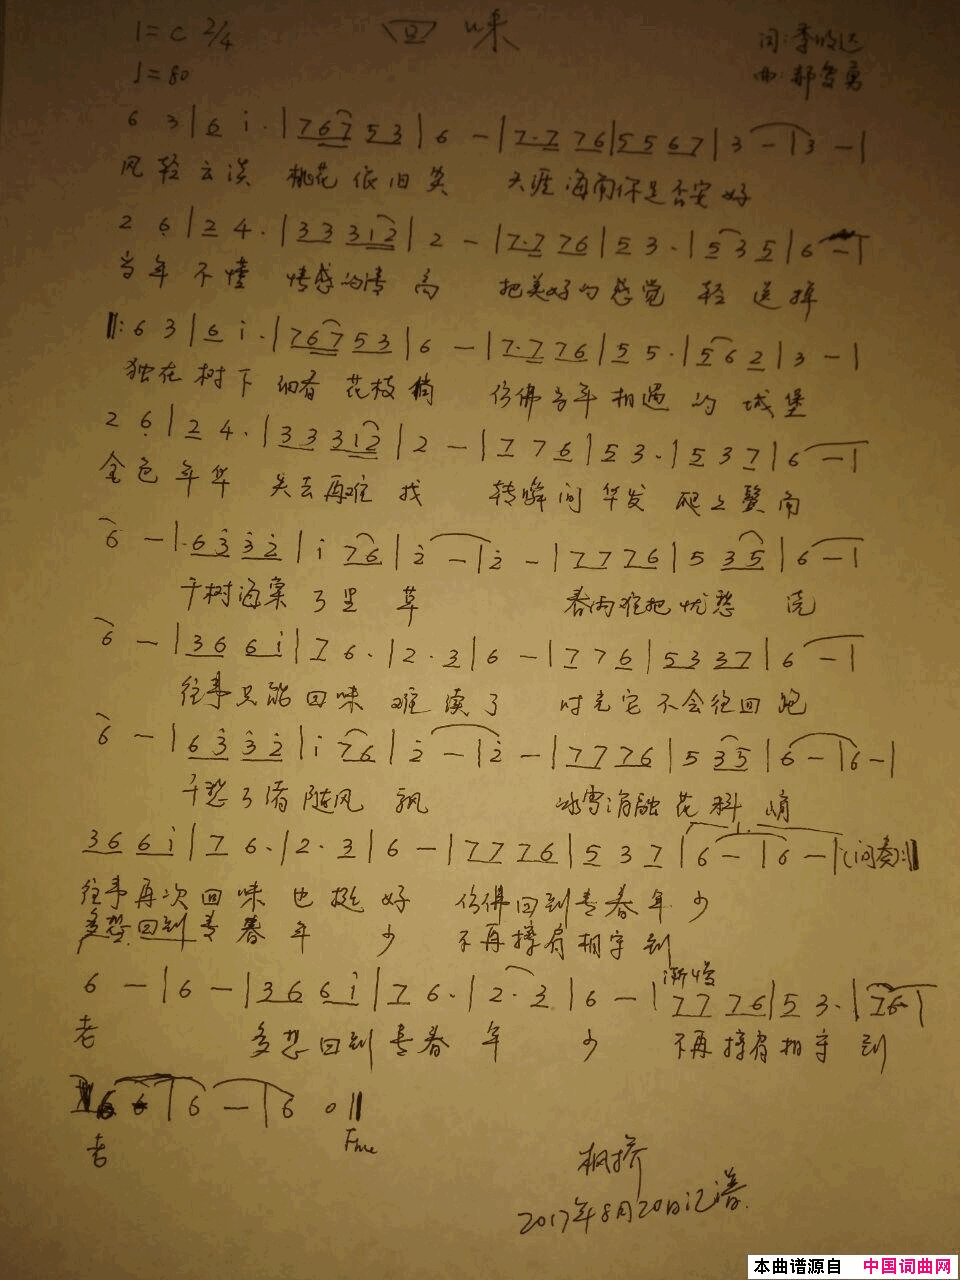 1=C 2/4 回味 词:李
♩=80 曲:郝
6 3|6 i·|7 6 7 5 3|6 -|7·7 7 6|5 5 6 7|3 -|3 -|
风轻云淡 桃花依旧笑 天涯海南你是否安好
2 6|2 4·|3 3 3 1 2|2 -|7·7 7 6|5 3·|5 3 5|6 -|
当年不懂 情感的清高 把美好的感觉 轻送掉
‖:6 3|6 i·|7 6 7 5 3|6 -|7·7 7 6|5 5·|5 6 2|3 -|
独在树下 细看花枝俏 仿佛当年相遇的城堡
2 6|2 4·|3 3 3 1 2|2 -|7 7 6|5 3·|5 3 7|6 -|
金色年华 失去再难找 转瞬间华发爬上鬓角
6 -|6 3 3 2|i 7 6|2 -|2 -|7 7 7 6|5 3 5|6 -|
千树海棠了里草 春雨难把忧愁浇
6 -|3 6 6 i|7 6·|2·3|6 -|7 7 6|5 3 3 7|6 -|
往事只能回味 难续了 时光它不会往回跑
6 -|6 3 3 2|i 7 6|2 -|2 -|7 7 7 6|5 3 5|6 -|6 -|
千愁了绪随风飘 冰雪消融花料峭
3 6 6 i|7 6·|2·3|6 -|7 7 7 6|5 3 7|1.6 -|6 -|(间奏):‖
往事再次回味也挺好 仿佛回到青春年少
多想回到青春年少 不再擦肩相守到
渐慢
6 -|6 -|3 6 6 i|7 6·|2·3|6 -|7 7 7 6|5 3·|7 6 -|
老 多想回到青春年少 不再擦肩相守到
6 6|6 -|6 0‖
老 Fine
枫桥
2017年8月20日记谱.
本曲谱源自 中国词曲网